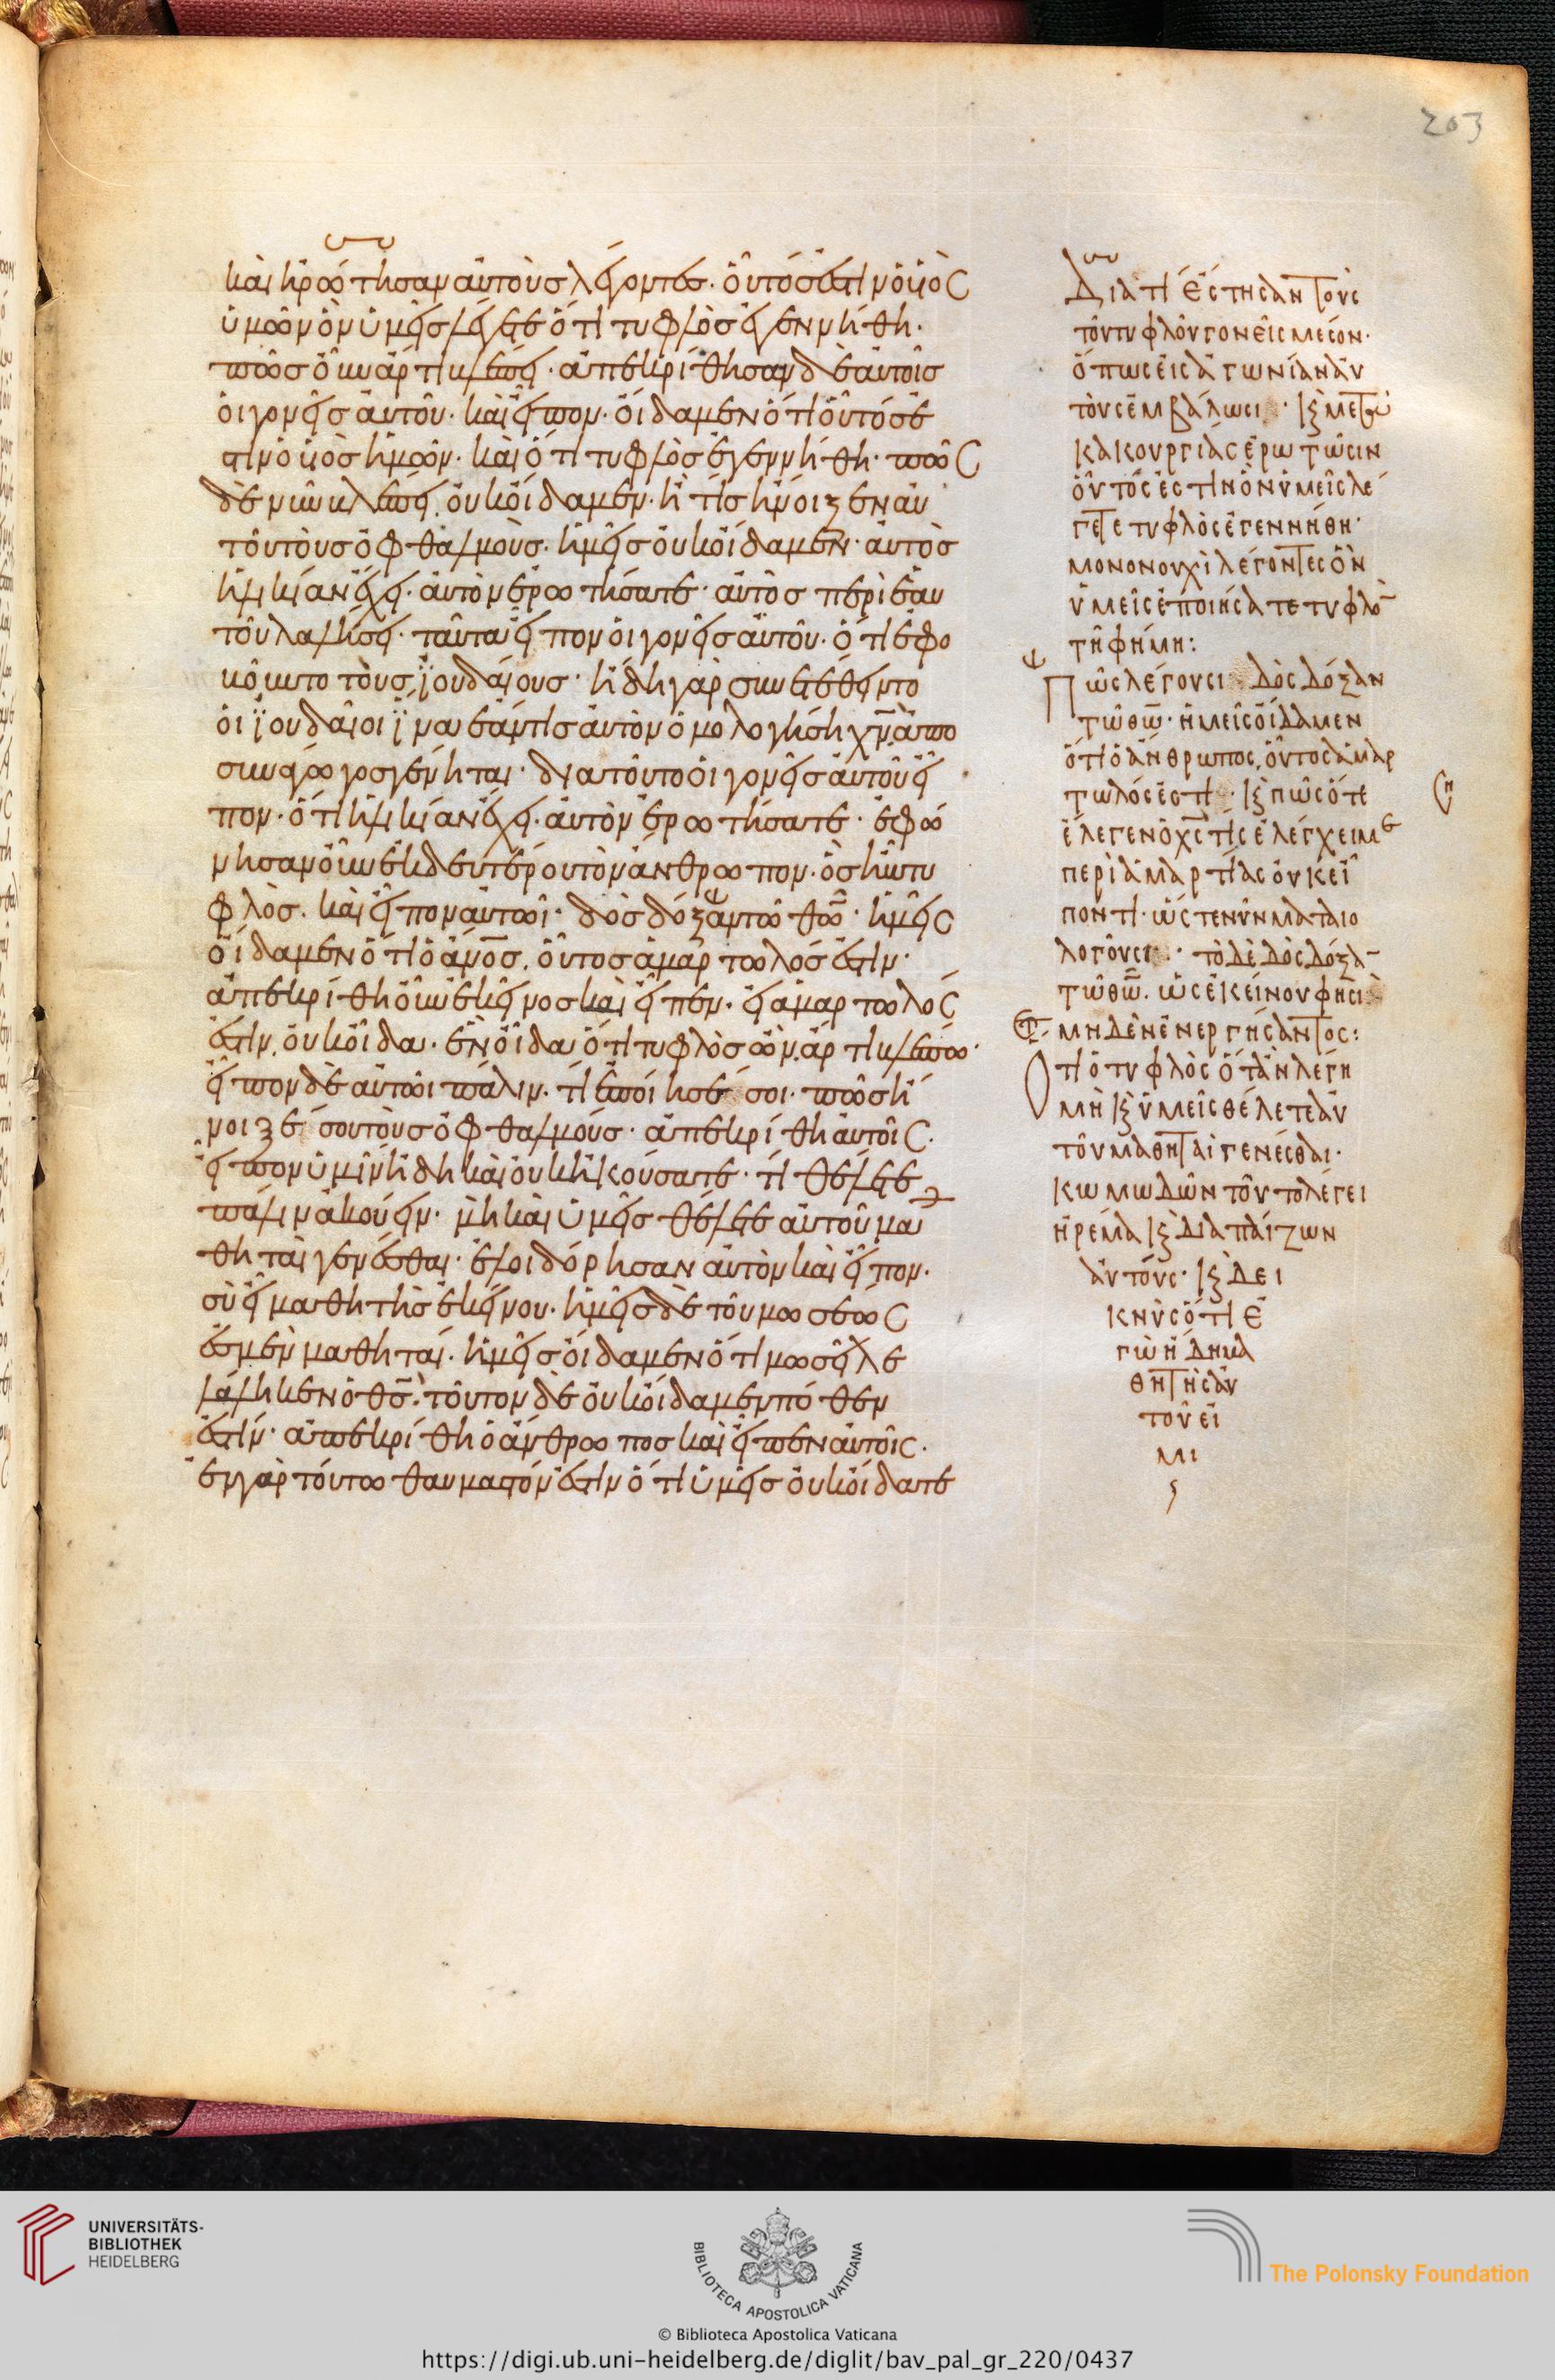 203
καὶ ἠρώτησαν αὐτοὺσ λέγοντεσ· οὗτόσ ἐστιν ὁ υἱὸς
ὑμῶν ὃν ὑμεῖσ λέγετε ὅτι τυφλὸσ ἐγεννήθη·
πῶσ οὖν ἄρτι βλέπει· ἀπεκρίθησαν δὲ αὐτοῖσ
οἱ γονεῖσ αὐτοῦ· καὶ εἶπον· οἴδαμεν ὅτι οὗτόσ ἐ
στιν ὁ υἱὸσ ἡμῶν· καὶ ὅτι τυφλὸσ ἐγεννήθη· πῶς
δὲ νῦν βλέπει, οὐκ οἴδαμεν· ἢ τίσ ἤνοιξεν αὐ
τοῦ τοὺσ ὀφθαλμοὺσ· ἡμεῖσ οὐκ οἴδαμεν· αὐτὸσ
ἡλικίαν ἔχει· αὐτὸν ἐρωτήσατε· αὐτὸσ περὶ ἑαυ
τοῦ λαλήσει· ταῦτα εἶπον οἱ γονεῖσ αὐτοῦ· ὅτι ἐφο
βοῦντο τοὺσ ἰουδαίουσ· ἤδη γὰρ συνετέθειντο
οἱ ἰουδαῖοι ἵνα ἐάν τισ αὐτὸν ὁμολογήση χν ἀπο
συνάγωγοσ γένηται· διατοῦτο οἱ γονεῖσ αὐτοῦ εἶ
πον· ὅτι ἡλικίαν ἔχει· αὐτὸν ἐρωτήσατε· ἐφώ
νησαν οὖν ἐκ δευτέρου τὸν ἄνθρωπον· ὃσ ἦν τυ
φλὸσ· καὶ εἶπον αὐτῶ· δὸσ δόξαν τῶ θῶ· ἡμεῖς
οἴδαμεν ὅτι ὁ ἄνοσ, οὗτοσ ἁμαρτωλόσ ἐστιν·
ἀπεκρίθη οὖν ἐκεῖνοσ καὶ εἶπεν· εἰ ἁμαρτωλός
ἐστιν, οὐκ οἶδα· ἓν οἶδα ὅτι τυφλὸσ ὢν, ἄρτι βλέπω·
εἶπον δὲ αὐτῶ πάλιν· τί ἐποίησέ σοι· πῶσ ἤ
νοιξέ σου τοὺσ ὀφθαλμούσ· ἀπεκρίθη αὐτοῖς·
εἶπον ὑμῖν ἤδη καὶ οὐκ ἠκούσατε· τί θέλετε
πάλιν ἀκούειν· μὴ καὶ ὑμεῖσ θέλετε αὐτοῦ μα
θηταὶ γενέσθαι· ἐλοιδόρησαν αὐτὸν καὶ εἶπον·
σὺ εἶ μαθητὴσ ἐκείνου· ἡμεῖσ δὲ τοῦ μωσέως
ἐσμὲν μαθηταί· ἡμεῖσ οἴδαμεν ὅτι μωσεῖ λε
λάληκεν ὁ θσ· τοῦτον δὲ οὐκ οἴδαμεν πόθεν
ἐστίν· ἀπεκρίθη ὁ ἄνθρωποσ καὶ εἶπεν αὐτοῖς·
ἐν γὰρ τούτω θαυμαστόν ἐστιν ὅτι ὑμεῖσ οὐκ οἴδατε
Διατί ἔστησαν τοὺς
τοῦ τυφλοῦ γονεῖς μέσον·
ὅπως εἰς ἀγωνίαν αὐ
τοὺς ἐμβάλωσι· κ μετὰ
κακουργίας ἐρωτῶσιν
οὗτός ἐστιν ὃν ὑμεῖς λέ
γετε τυφλὸς ἐγεννήθη·
μονονουχὶ λέγοντες ὃν
ὑμεῖς ἐποιήσατε τυφλὸ
τῆ φήμη:
Πῶς λέγουσι δὸς δόξαν
τῶ θῶ· ἡμεῖς οἴδαμεν
ὅτι ὁ ἄνθρωπος, οὗτος ἁμαρ
τωλός ἐστι· κ πῶς ὅτε
ἔλεγεν ὁ χς τίς ἐλέγχει με
περὶ ἁμαρτίας οὐκ εἶ
πον τι· ὥστε νῦν ματαιο
λογοῦσι· τὸ δὲ δὸς δόξα
τῶ θῶ. ὡς ἐκείνου φησὶ
μηδὲν ἐνεργήσαντος:
Ὅτι ὁ τυφλὸς ὅταν λέγη
μὴ κ ὑμεῖς θέλετε αὐ
τοῦ μαθηταὶ γενέσθαι·
κωμωδῶν τοῦτο λέγει
ἠρέμα κ διαπαίζων
αὐτούς· κ δει
κνὺς ὅτι ἐ
γὼ ἤδη μα
θητὴς αὐ
τοῦ εἰ
μι
UNIVERSITÄTS-
BIBLIOTHEK
HEIDELBERG
BIBLIOTECA APOSTOLICA VATICANA
The Polonsky Foundation
© Biblioteca Apostolica Vaticana
https://digi.ub.uni-heidelberg.de/diglit/bav_pal_gr_220/0437